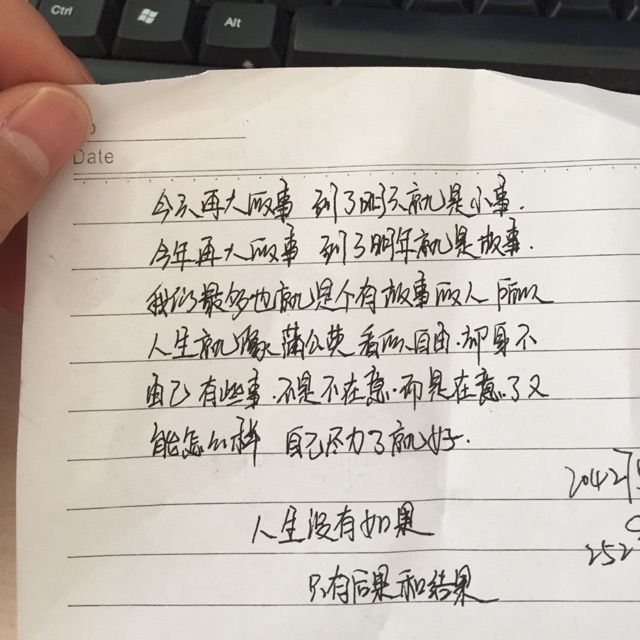 Ctrl
Alt
Date
今天再大的事 到了明天就是小事.
今年再大的事 到了明年就是故事.
我们最多也就是个有故事的人 所以
人生就像蒲公英 看似自由.却身不
由己 有些事.不是不在意.而是在意了又
能怎么样 自己尽力了就好.
20427
252
人生没有如果
只有后果和结果